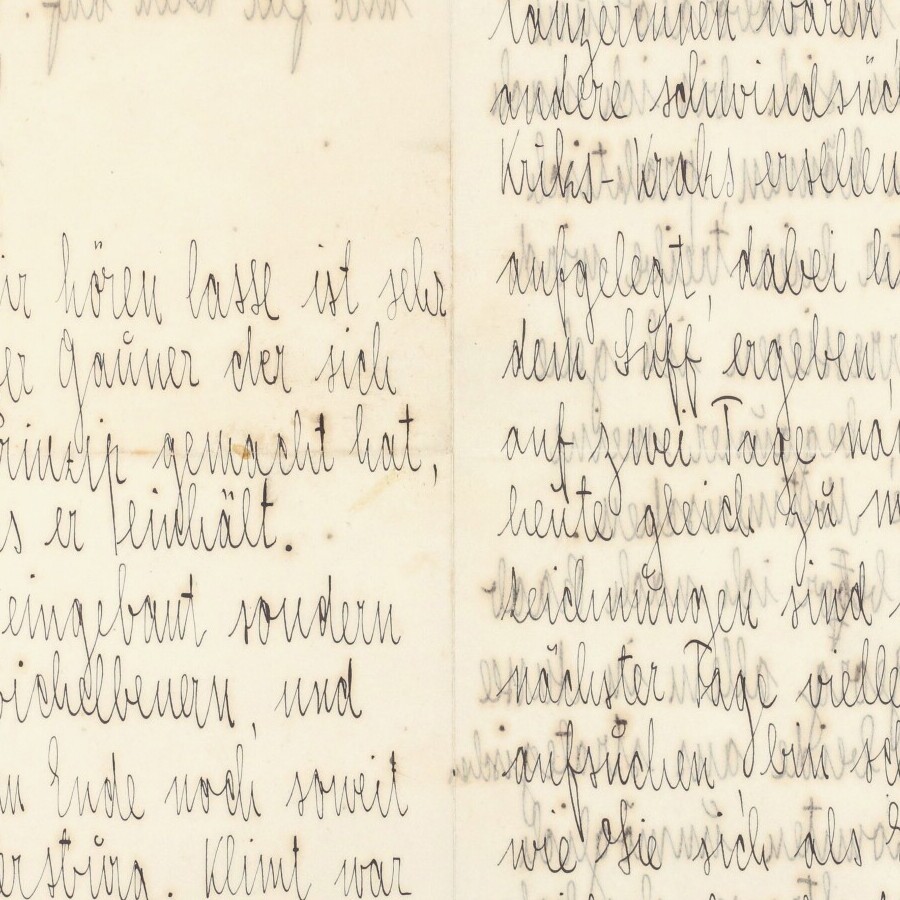 ir hören lasse ist sehr
er Gauner der sich
Prinzip gemacht hat,
s er einhält.
eingebaut sondern
und
Ende noch soweit
ersburg. Klimt war
tänzerinnen waren
andere schwindsüch
Kriks-Kraks, ersehen
aufgelegt, dabei h
dem Suff ergeben,
auf zwei Tage na
heute gleich zu m
zeichnungen sind
nächster Tage vielle
aufsuchen, bin sc
wie Sie sich als